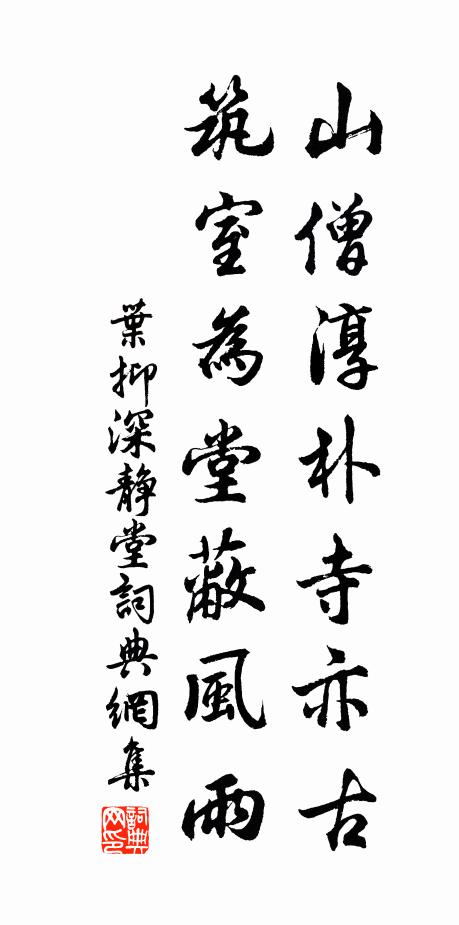 山僧淳朴寺亦古
筑室為堂蔽風雨
葉抑深靜堂詞典網集
詞典网印